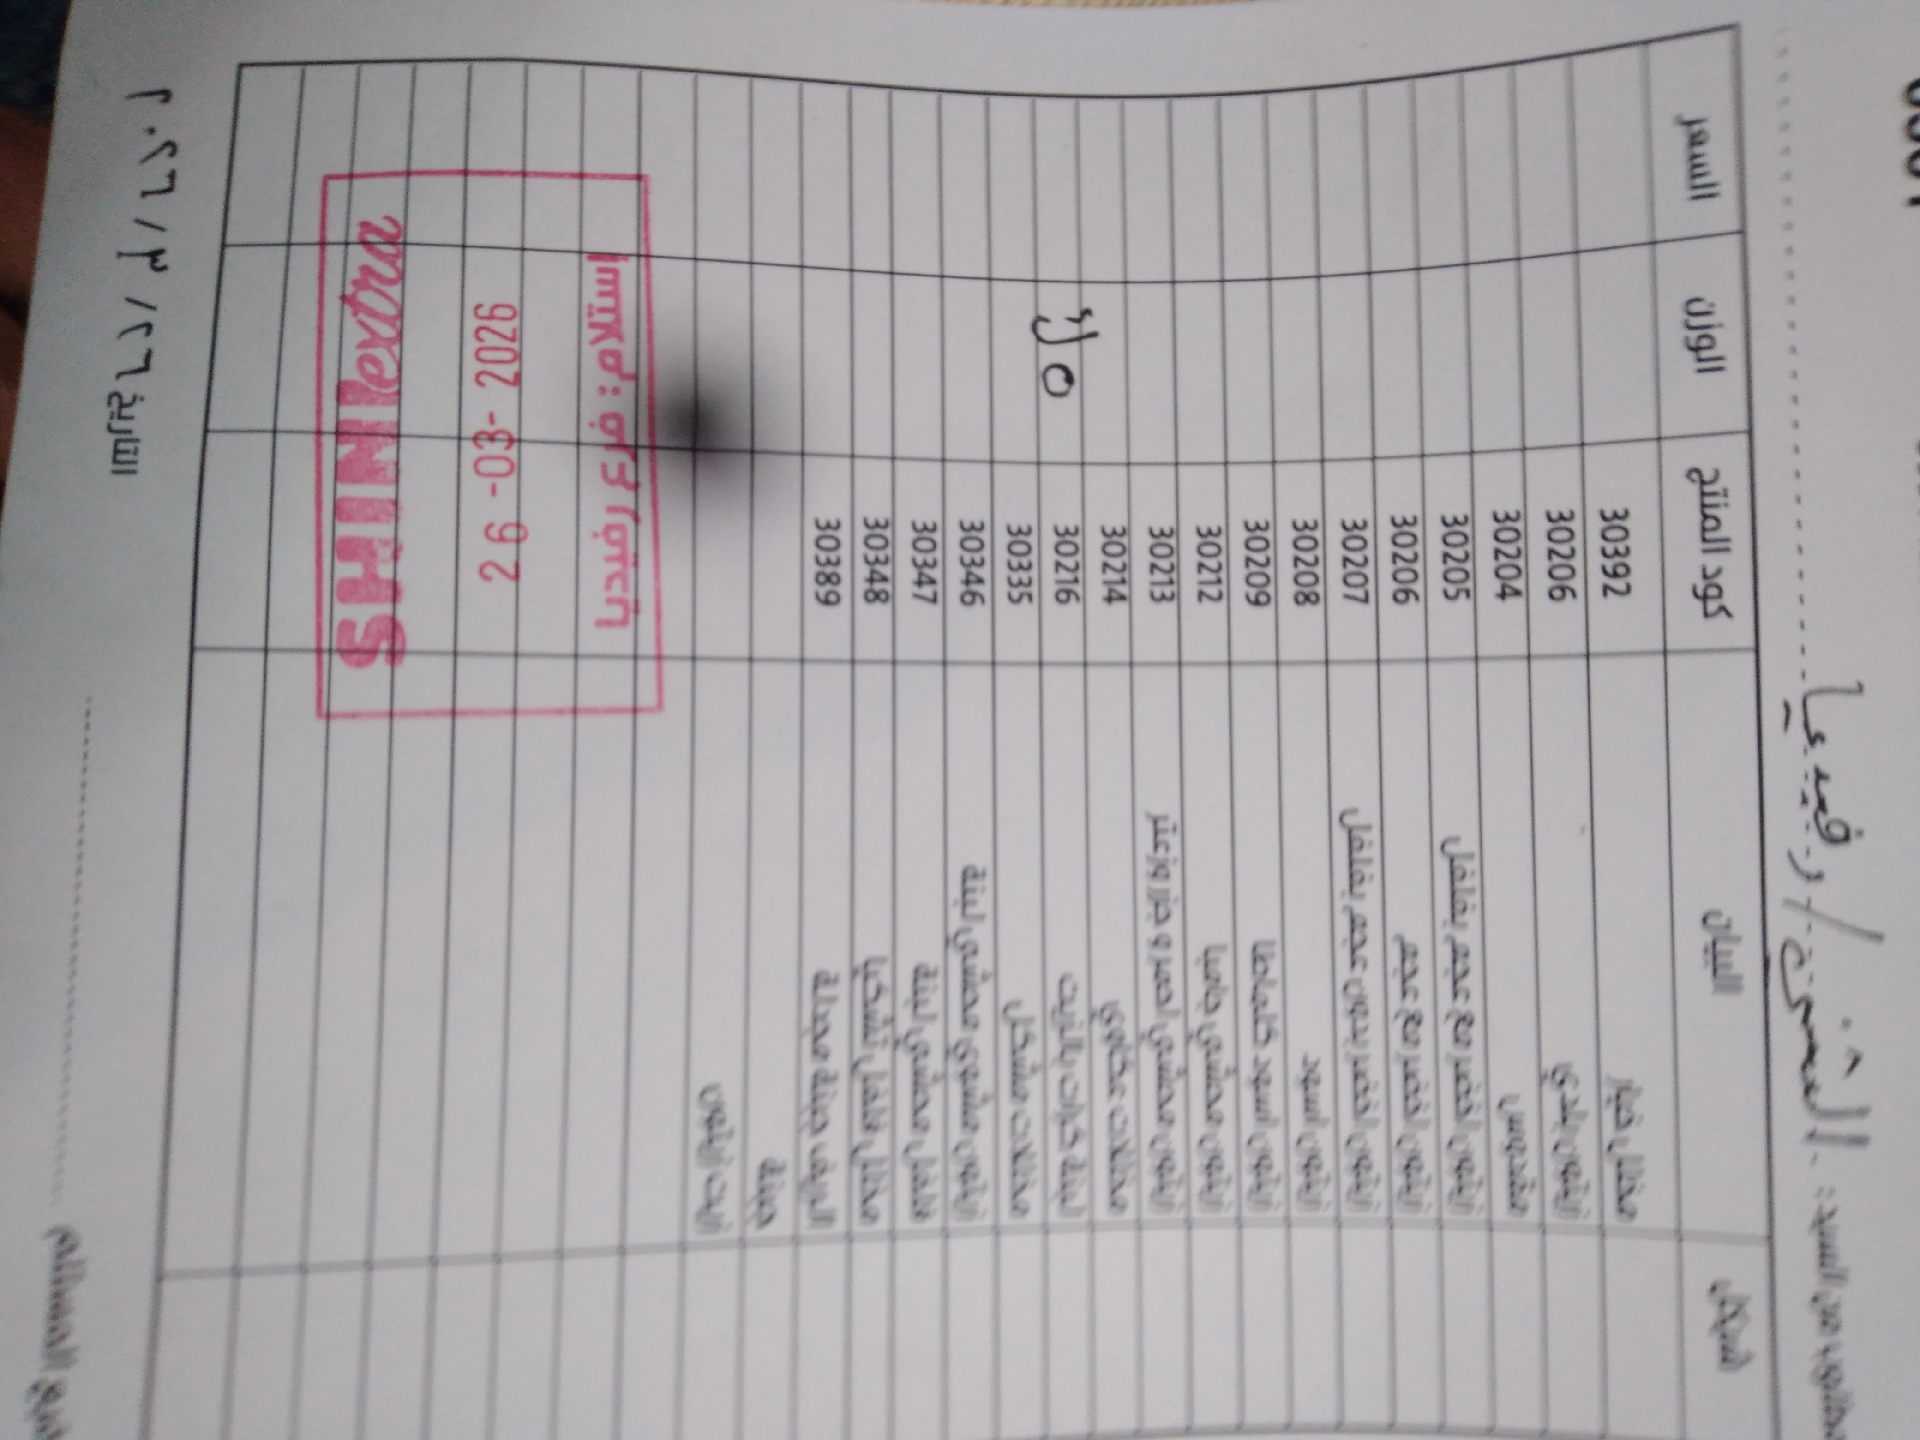 مطلوب من السيد: المشرق / رفيديا
شيكل البيان كود المنتج الوزن السعر
مخلل خيار 30392
زيتون بلدي 30206
مقدوس 30204
زيتون اخضر مع عجم بفلفل 30205
زيتون اخضر مع عجم 30206
زيتون اخضر بدون عجم بفلفل 30207
زيتون اسود 30208
زيتون اسود كلاماطا 30209
زيتون محشي جامبا 30212
زيتون محشي احمر و جزر وزعتر 30213
مخللات عكاوي 30214
لبنة كرات بالزيت 30216
مخللات مشكل 30335
زيتون مشوي محشي لبنة 30346
فلفل محشي لبنة 30347
مخلل فلفل تشكيا 30348
الريف جبنة مجدلة 30389
جبنة
زيت زيتون
26 -03- 2026
SHINI extra
التاريخ ٢٦ / ٣ / ٢٠٢٦
توقيع المستلم